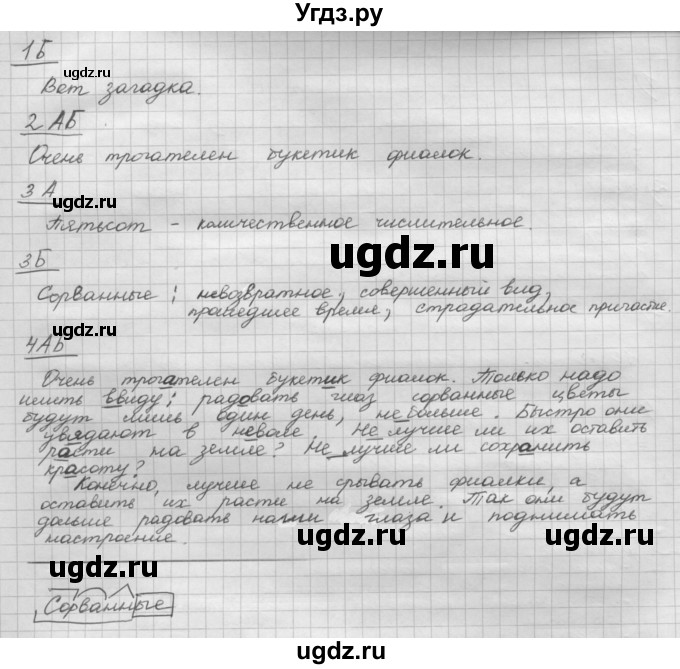 Угдз.ру
1Б
ugdz.ru
ugdz.ru
Вот загадка.
2 АБ
Очень трогателен букетик фиалок.
ugdz.ru
ugdz.ru
3 А
Пятьсот - количественное числительное.
ugdz.ru
3Б
Сорванные: невозвратное, совершенный вид,
прошедшее время, страдательное причастие.
ugdz.ru
ugdz.ru
4АБ
Очень трогателен букетик фиалок. Только надо
иметь ввиду: радовать глаз сорванные цветы
будут лишь один день, не больше. Быстро они
увядают в неволе. Не лучше ли их оставить
расти на земле? Не лучше ли сохранить
красоту?
Конечно, лучше не срывать фиалки, а
оставить их расти на земле. Так они будут
дольше радовать наши глаза и поднимать
настроение.
ugdz.ru
ugdz.ru
Сорванные
ugdz.ru
ugdz.ru